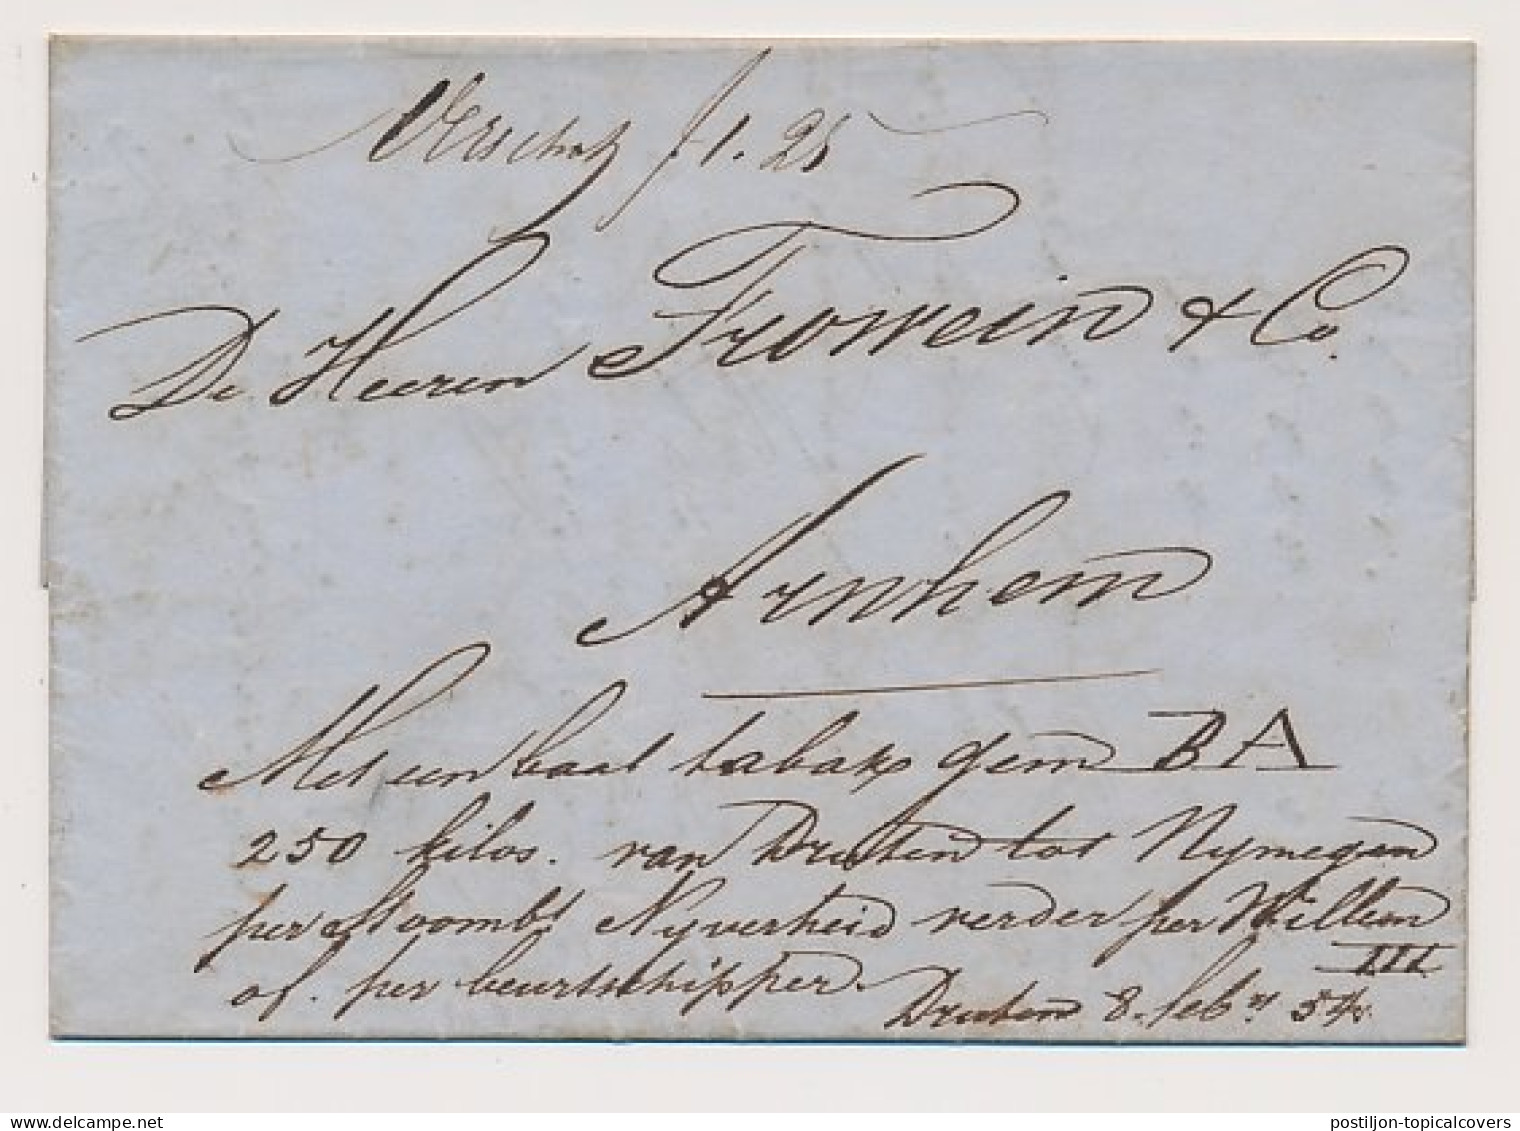 Verschot f 1.25
De Heeren Frowein & Co.
Arnhem
Met een baal tabak gem BA
250 kilos. van Druten tot Nymegen
per Stoombt Nyverheid verder per Willem
III
of per beurtschipper.
Druten 8 febry 54
delcampe.net
postiljon-topicalcovers